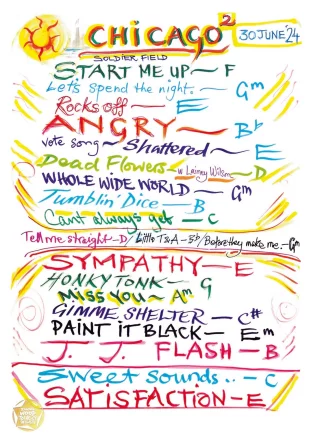 CHICAGO 2 30 JUNE '24
SOLDIER FIELD
START ME UP — F
Let's spend the night. — Gm
Rocks off — E
ANGRY — Bb
vote song ~ Shattered — E
Dead Flowers — w Lainey Wilson — D
WHOLE WIDE WORLD — Gm
Tumblin' Dice — B
Cant always get — C
Tell me straight - D / Little T&A - Bb / Before they make me. - Gm
SYMPATHY — E
HONKY TONK — G
MISS YOU — Am
GIMME SHELTER — C#
PAINT IT BLACK — Em
J. J. FLASH — B
Sweet Sounds.. — C
SATISFACTION - E